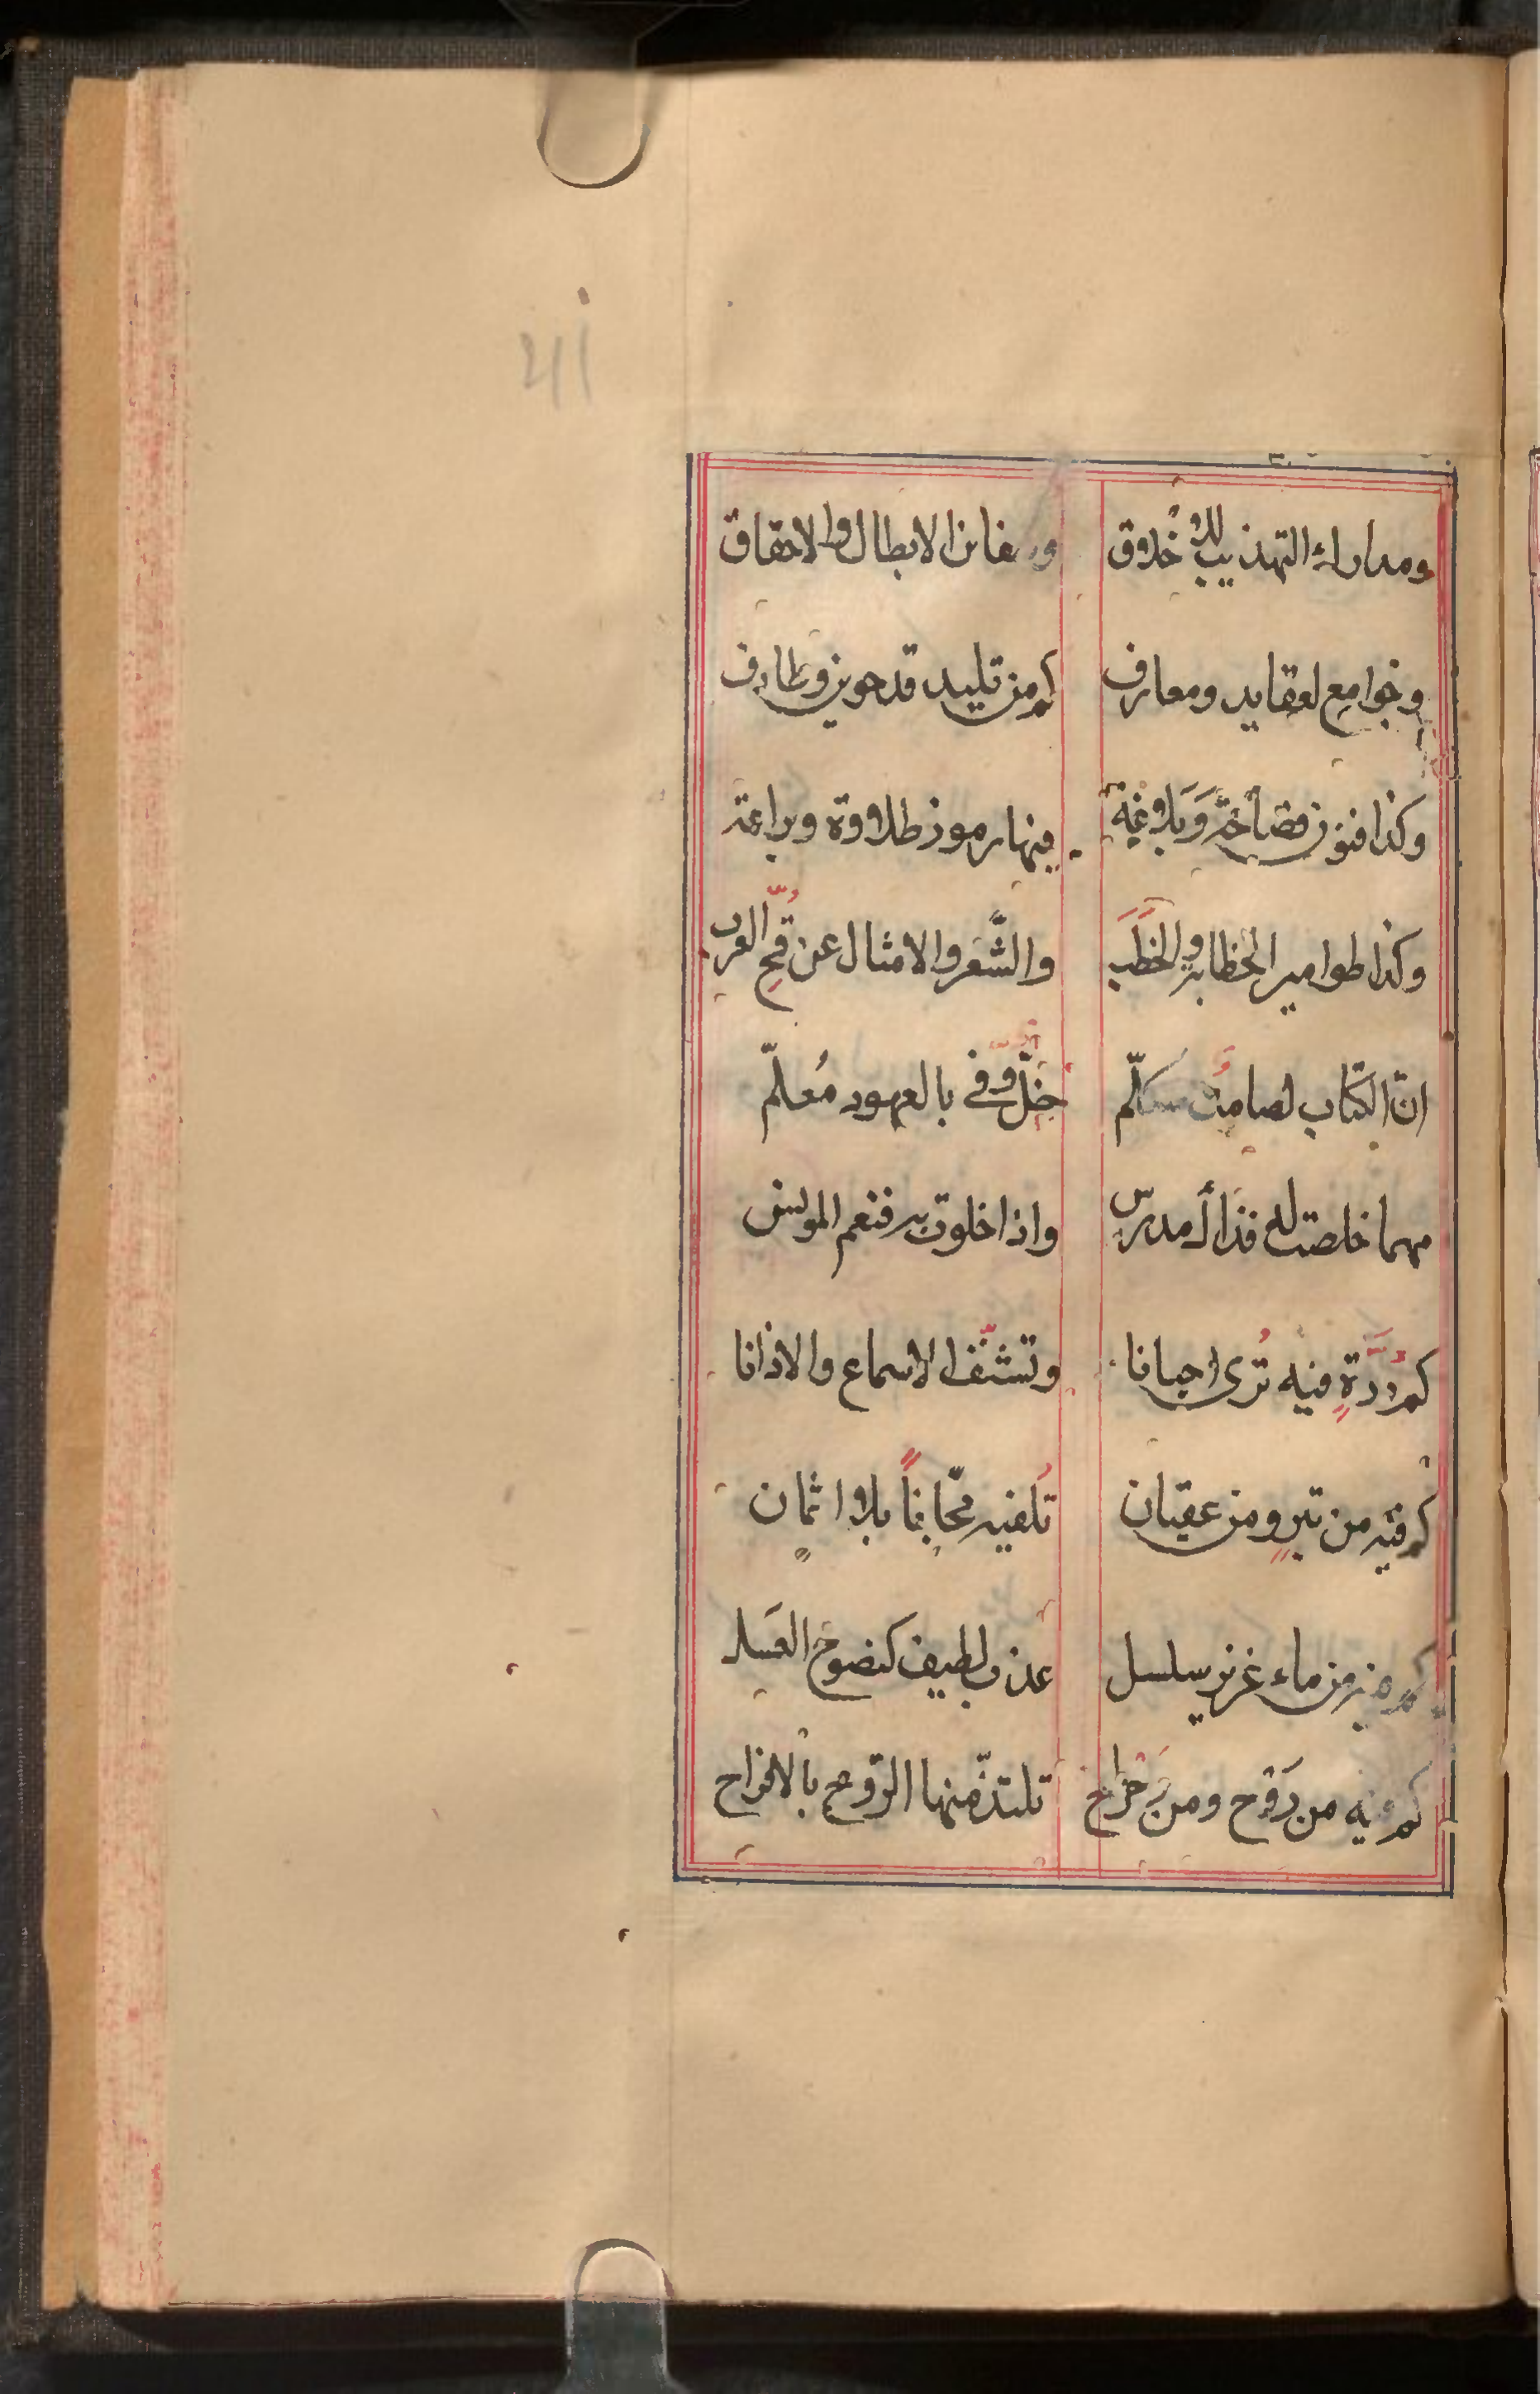 ومدارك التهذيب للاخلاق الابطال والاحقاق
وجوامع لعقايد ومعارف كم من تليد قد حوين وطارف
وكذا فنون فصاحة وَبَلاغة فيها رموز طلاوة وبراعة
وكذا طوامير الخطابة والخطَب والشّعر والامثال عن قُحِّ العرب
انّ الكتاب لصامتُ خِلٌّ وفى بالعهود مُعلّم
مهما خلصت له فذاك مدرس واذا خلوت به فنعم المونس
كم دُرَّةٍ فيه تُرى احيانا وتشنّف الاسماع والاذانا
كم فيه من تبرٍ ومن عقيان تُلفيه مجّاناً بلا اثمان
كم فيه من ماء غزير سلسل عذب لطيف كنضوح العسل
كم فيه من رَوْح ومن تلتذّ منها الرّوح بالافراح